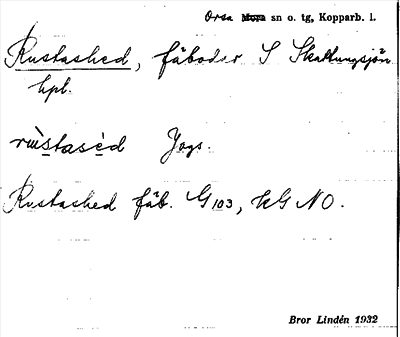 Orsa Mora sn o. tg, Kopparb. l.
Rustashed, fäbodar S Skattungsjön
hpl.
Jogs.
Rustashed fäb. G103, HG NO.
Bror Lindén 1932